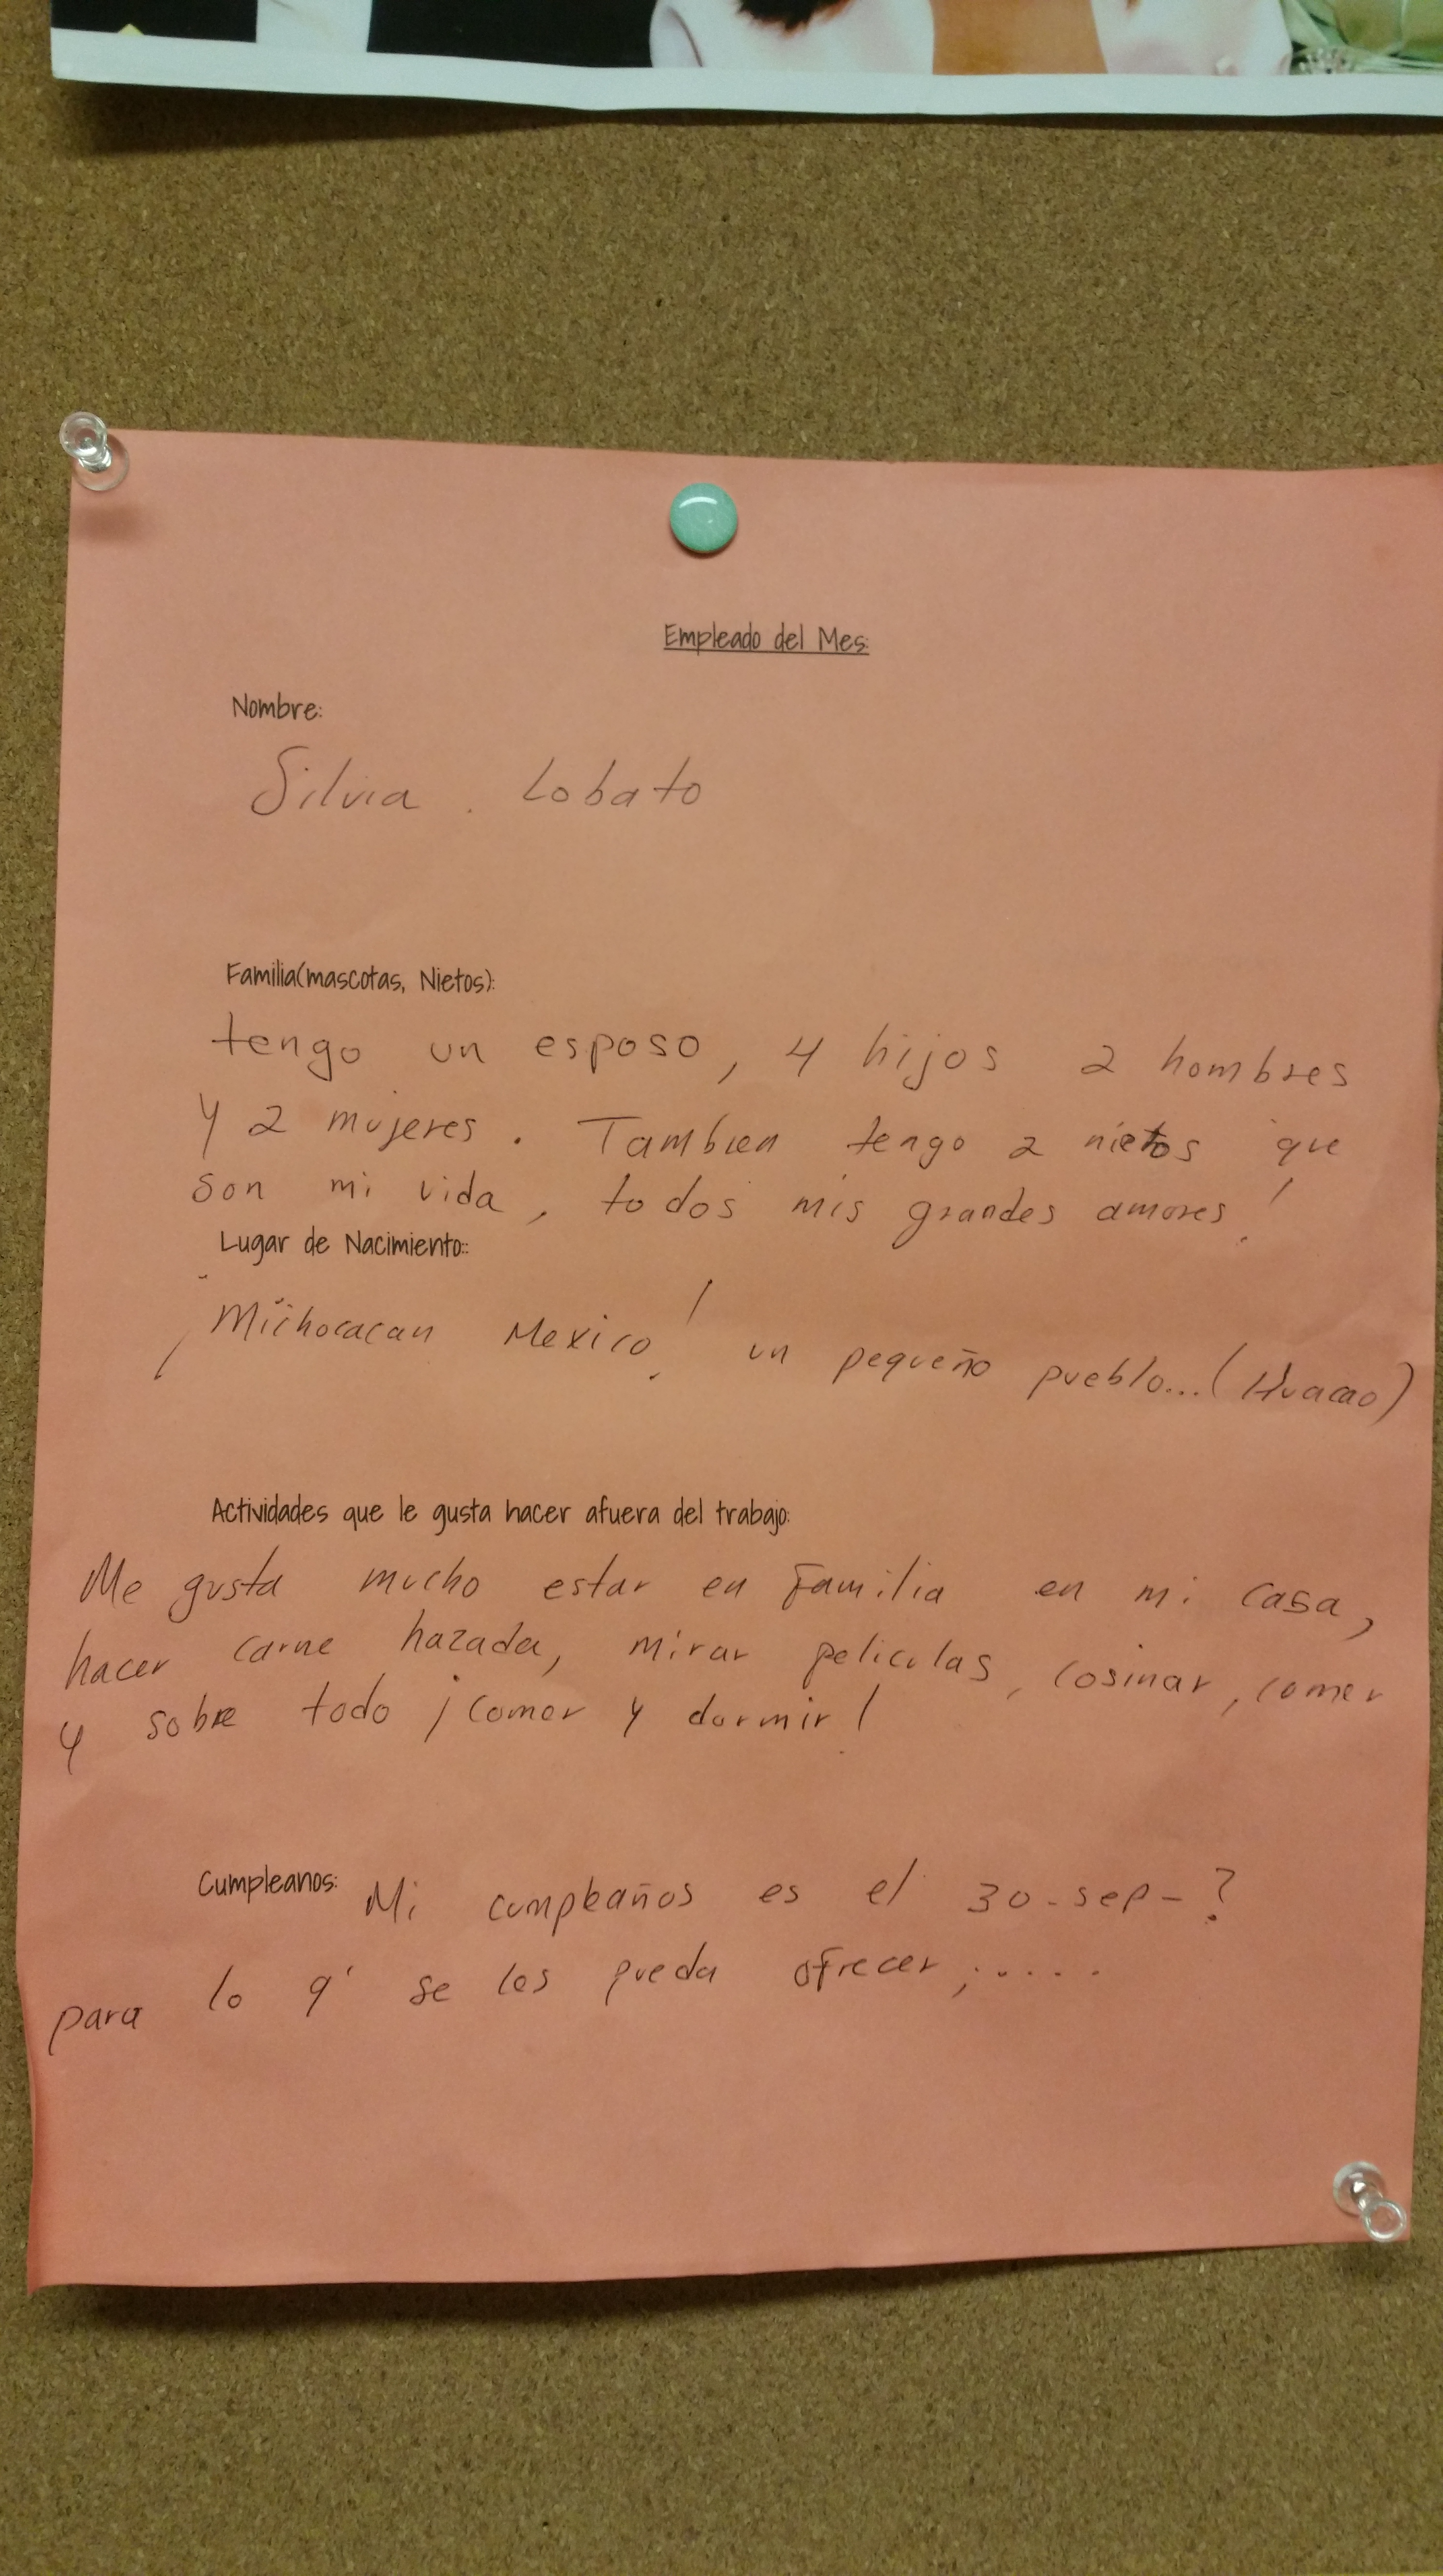 Empleado del Mes:
Nombre:
Silvia. Lobato
Familia(mascotas, Nietos):
tengo un esposo, 4 hijos 2 hombres
y 2 mujeres. Tambien tengo 2 nietos que
son mi vida, todos mis grandes amores!
Lugar de Nacimiento::
¡Michoacacan Mexico! un pequeño pueblo...(Huacao)
Actividades que le gusta hacer afuera del trabajo:
Me gusta mucho estar en Familia en mi casa,
hacer carne hazada, mirar peliculas, cosinar, comer
y sobre todo ¡comer y dormir!
Cumpleanos: Mi cumpleaños es el 30-sep-?
para lo q' se les pueda ofrecer;.....